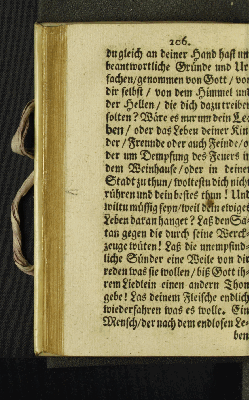 206.
du gleich an deiner Hand hast un
beantwortliche Gründe und Ur
sachen/genommen von Gott / von
dir selbst / von dem Himmel und
der Hellen / die dich dazu treiben
solten? Wäre es nur um dein Le
ben / oder das Leben deiner Kin
der / Freunde oder auch Feinde/o
der um Dempfung des Feuers in
dem Weinhause/oder in deiner
Stadt zu thun/woltestu dich nicht
rühren und dein bestes thun! Und
wiltu müssig seyn/weil dein ewiges
Leben daran hanget? Laß den Sa-
tan gegen die durch seine Werck-
zeuge wüten! Laß die unempfind-
liche Sünder eine Weile von dir
reden was sie wollen/biß Gott ih-
rem Liedlein einen andern Thon
gebe! Las deinem Fleische endlich
wiederfahren was es wolle. Ein
Mensch/der nach dem endlosen Le-
ben